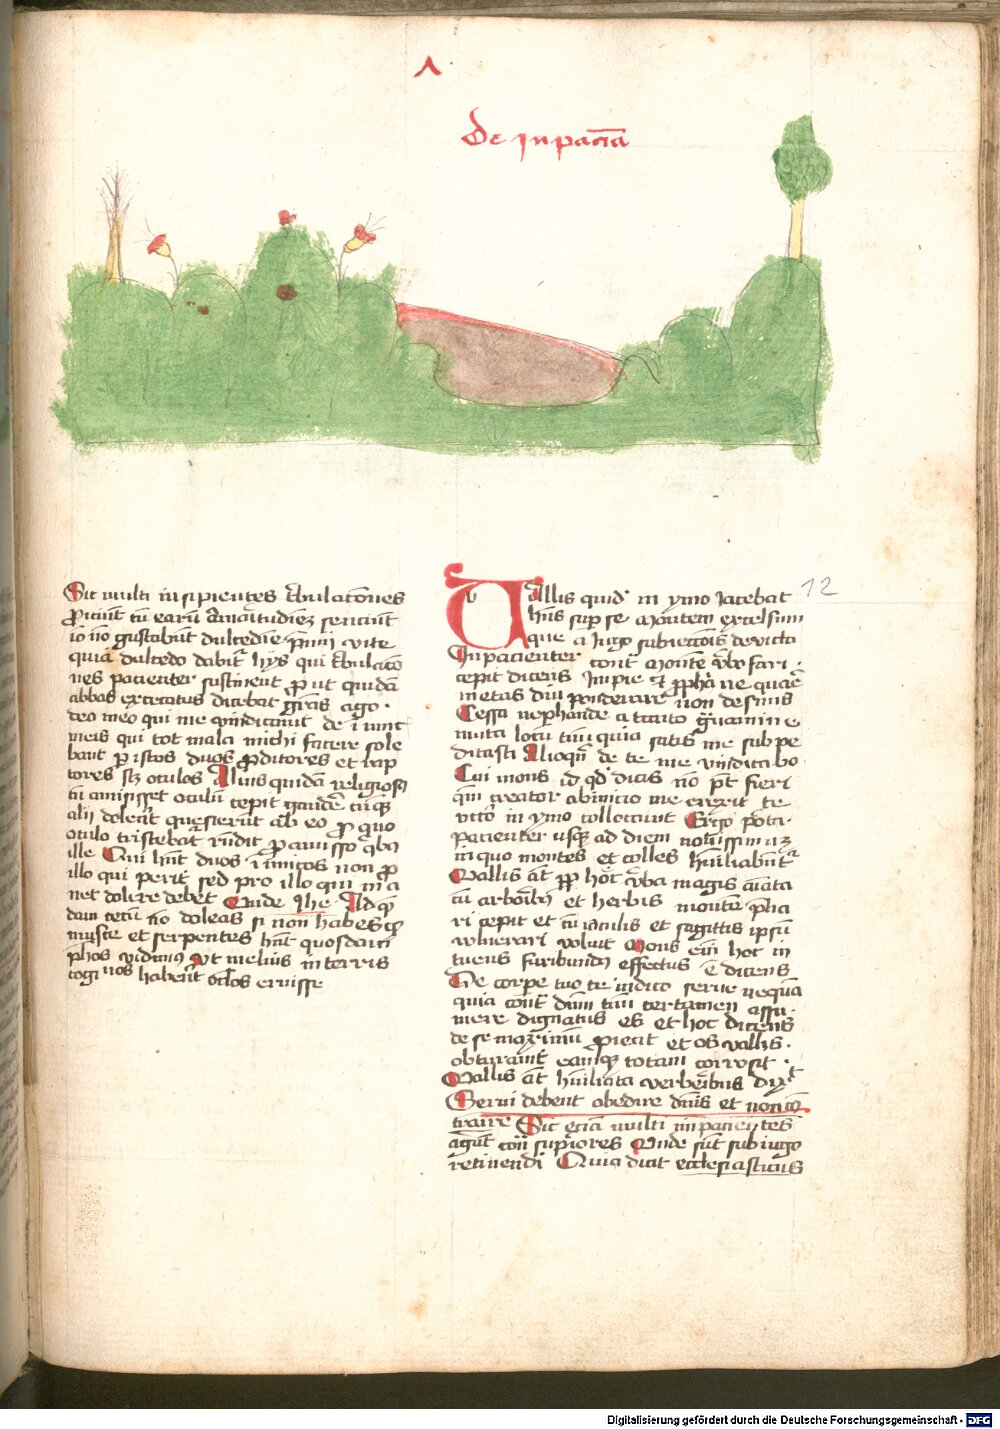 A
De inpaciencia
Sic multi insipientes tribulationes
proiciunt cum earum amaritudinem senciunt
io no gustabunt dulcedinem premii vite
quia dulcedo dabitur hiis qui tribulatio
nes pacienter sustinent prout quidam
abbas excecatus dicebat gracias ago
deo meo qui me vindicauit de inimicis
meis qui tot mala michi facere sole
bant per istos duos proditores et rap
tores scilicet oculos Alius quidam religiosus
cum amisisset oculum cepit gaudere cumque
alii dolerent quesierunt ab eo pro quo
oculo tristebatur respondit pro amisso quibus
ille Qui habent duos inimicos non pro
illo qui perit sed pro illo qui ma
net dolere debet Unde Ihe
dam ceco no doleas si non habes quod
musce et serpentes habent quosdam
phos vidimus ut melius in terris
cogi nos haberent oculos eruisse
12
Vallis quidam in ymo iacebat
habens super se montem excelsum
que a iugo subiectionis deuicta
Inpacienter contra monte verbo fari
cepit dicens Impie et prophane quare
metas diu ponderare non desinis
Cessa nephande a tanto grauamine
muta locum tuum quia satis me suppe
ditasti Alioquin de te me vindicabo
Cui mons id quod dicis non potest fieri
quoniam creator ab inicio me erexit te
vero in ymo collocauit Ergo porta
pacienter usque ad diem nouissimum
in quo montes et colles humiliabuntur
Vallis autem propter hoc verba magis armata
cum arboribus et herbis montem
ri cepit et cum iaculis et sagittis ipsum
vulnerari voluit Mons enim hoc in
tuens furibundus effectus e dicens
De corpore tuo te iudico serue nequam
quia contra dominum tuum certamen assu
mere dignatus es et hoc dicens
de se maximum proiecit et os vallis
obturauit eamque totam corrosit
Vallis autem humiliata verberibus dixit
Serui debent obedire dominis et non con
traire Sic eciam multi inpacientes
agunt contra superiores Unde sunt sub iugo
retinendi Quia dicit ecclesiasticus
Digitalisierung gefördert durch die Deutsche Forschungsgemeinschaft - DFG